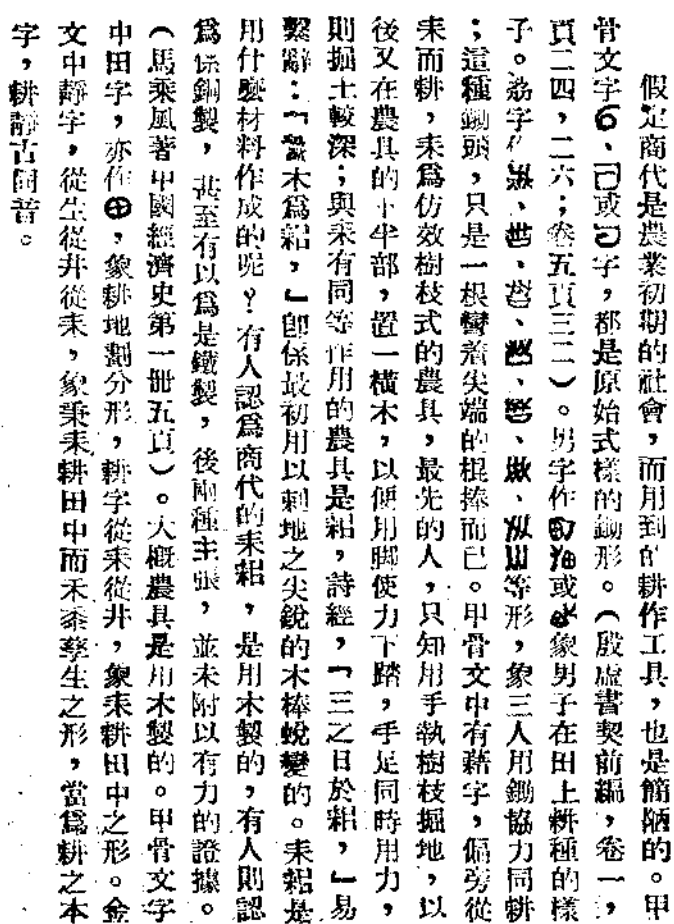 假定商代是農業初期的社會，而用到的耕作工具，也是簡陋的。甲
骨文字、或字，都是原始式樣的鋤形。（殷虛書契前編，卷一，
頁二四，二六；卷五頁三二）。男字作或象男子在田上耕種的樣
子。劦字作、、、、、、等形，象三人用鋤協力同耕
；這種鋤頭，只是一根彎着尖端的棍捧而已。甲骨文中有藉字，偏旁從
耒而耕，耒爲仿效樹枝式的農具，最先的人，只知用手執樹枝掘地，以
後又在農具的下半部，置一橫木，以便用脚使力下踏，手足同時用力，
則掘土較深；與耒有同等作用的農具是耜，詩經，「三之日於耜，」易
繫辭：「木爲耜，」卽係最初用以刺地之尖銳的木棒蛻變的。耒耜是
用什麼材料作成的呢？有人認爲商代的耒耜，是用木製的，有人則認
爲係銅製，甚至有以爲是鐵製，後兩種主張，並未附以有力的證據。
（馬乘風著中國經濟史第一册五頁）。大概農具是用木製的。甲骨文字
中田字，亦作，象耕地劃分形，耕字從耒從井，象耒耕田中之形。金
文中靜字，從生從井從耒，象秉耒耕田中而禾黍孳生之形，當爲耕之本
字，耕靜古同音。